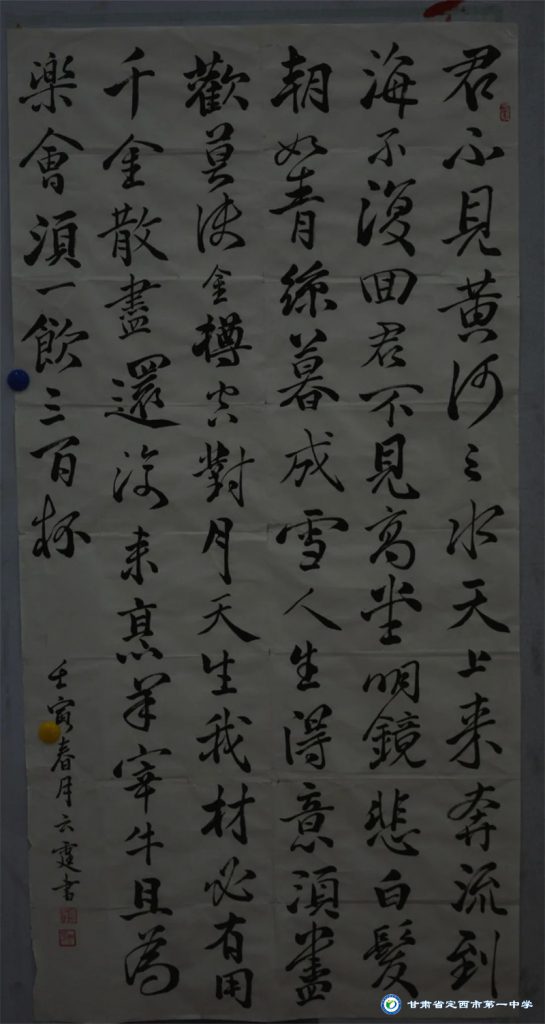 君不見黄河之水天上来奔流到
海不復回君不見高堂明鏡悲白髮
朝如青絲暮成雪人生得意須盡
歡莫使金樽空對月天生我材必有用
千金散盡還復来烹羊宰牛且為
樂會須一飲三百杯
壬寅春月云霆書
甘肃省定西市第一中学